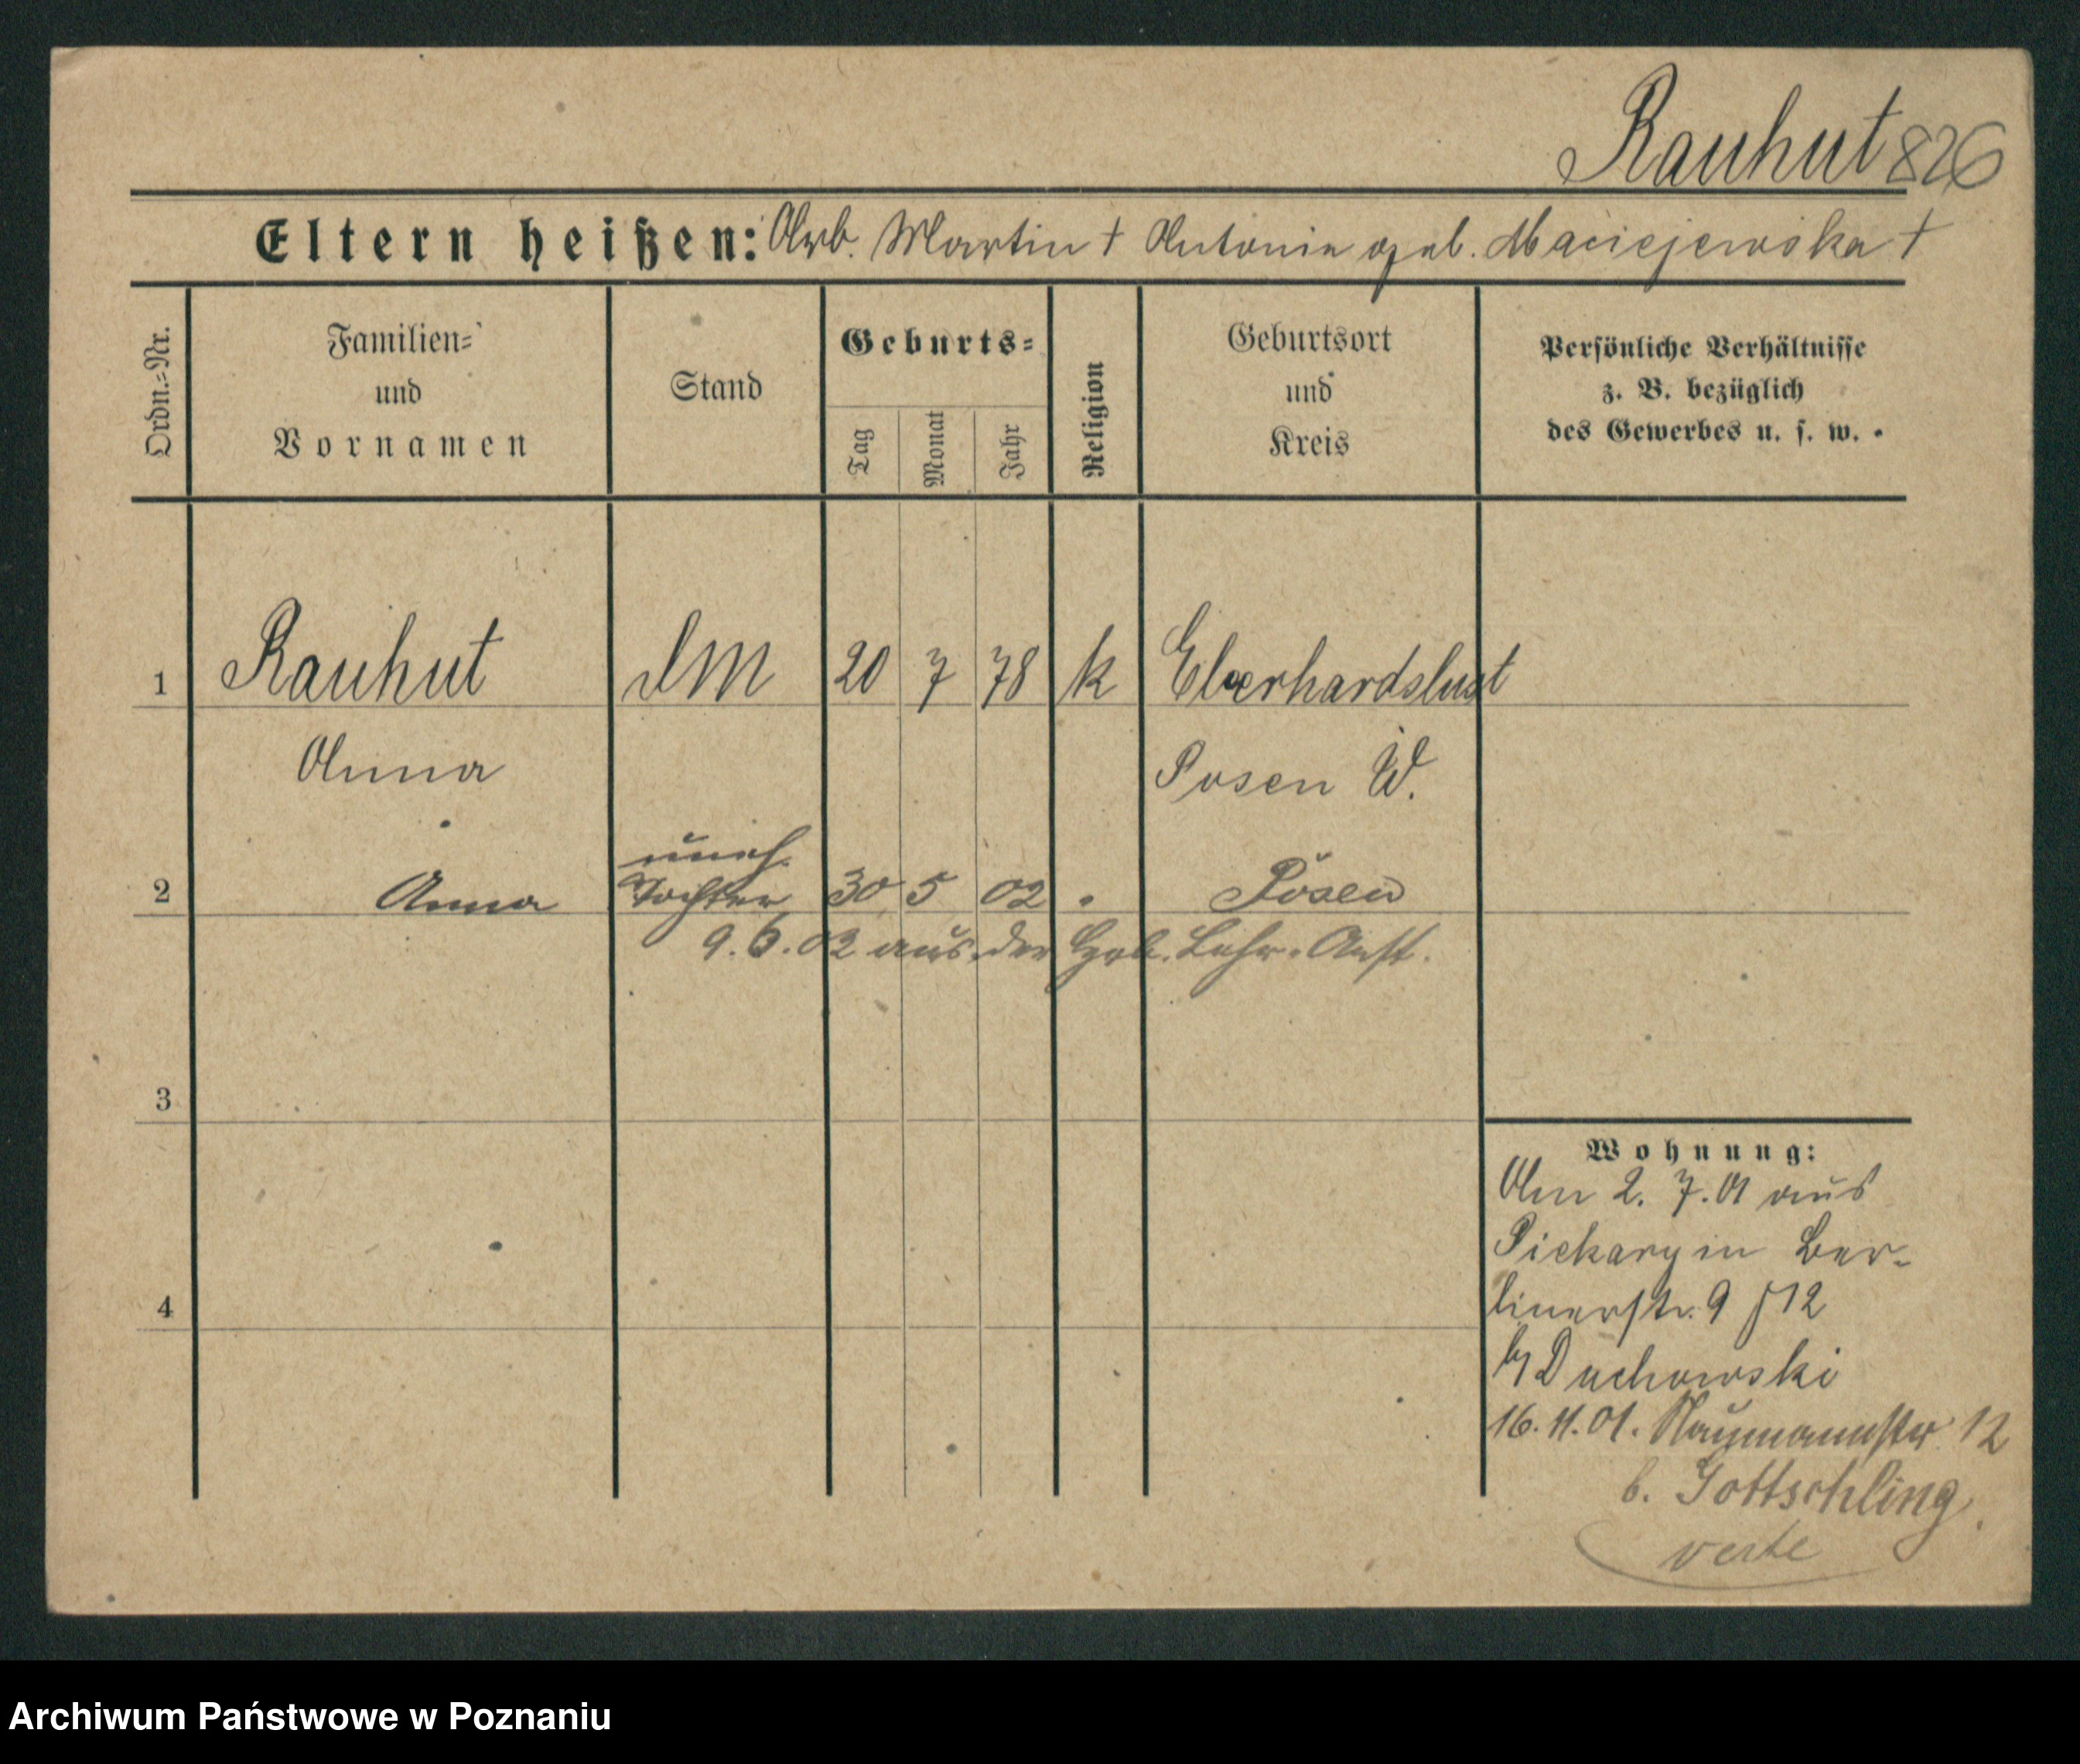 Rauhut 826
Eltern heißen: Arb. Martin † Antonie geb. Maciejewska †
Ordn.=Nr.
Familien=
und
Vornamen
Stand
Geburts=
Tag
Monat
Jahr
Religion
Geburtsort
und
Kreis
Persönliche Verhältnisse
z. B. bezüglich
des Gewerbes u. s. w.
1 Rauhut DM 20 7 78 k Eberhardslust
Anna Posen W.
uneh.
2 Anna Tochter 30 5 02 Posen
9.6.02 aus der Heb. Lehr-Anst.
3
4
Wohnung:
Am 2. 7. 01 aus
Piekary in Ber-
linerstr. 9 12
b/ Duchowski
16. 11. 01. Naumannstr 12
b. Gottschling
verte
Archiwum Państwowe w Poznaniu